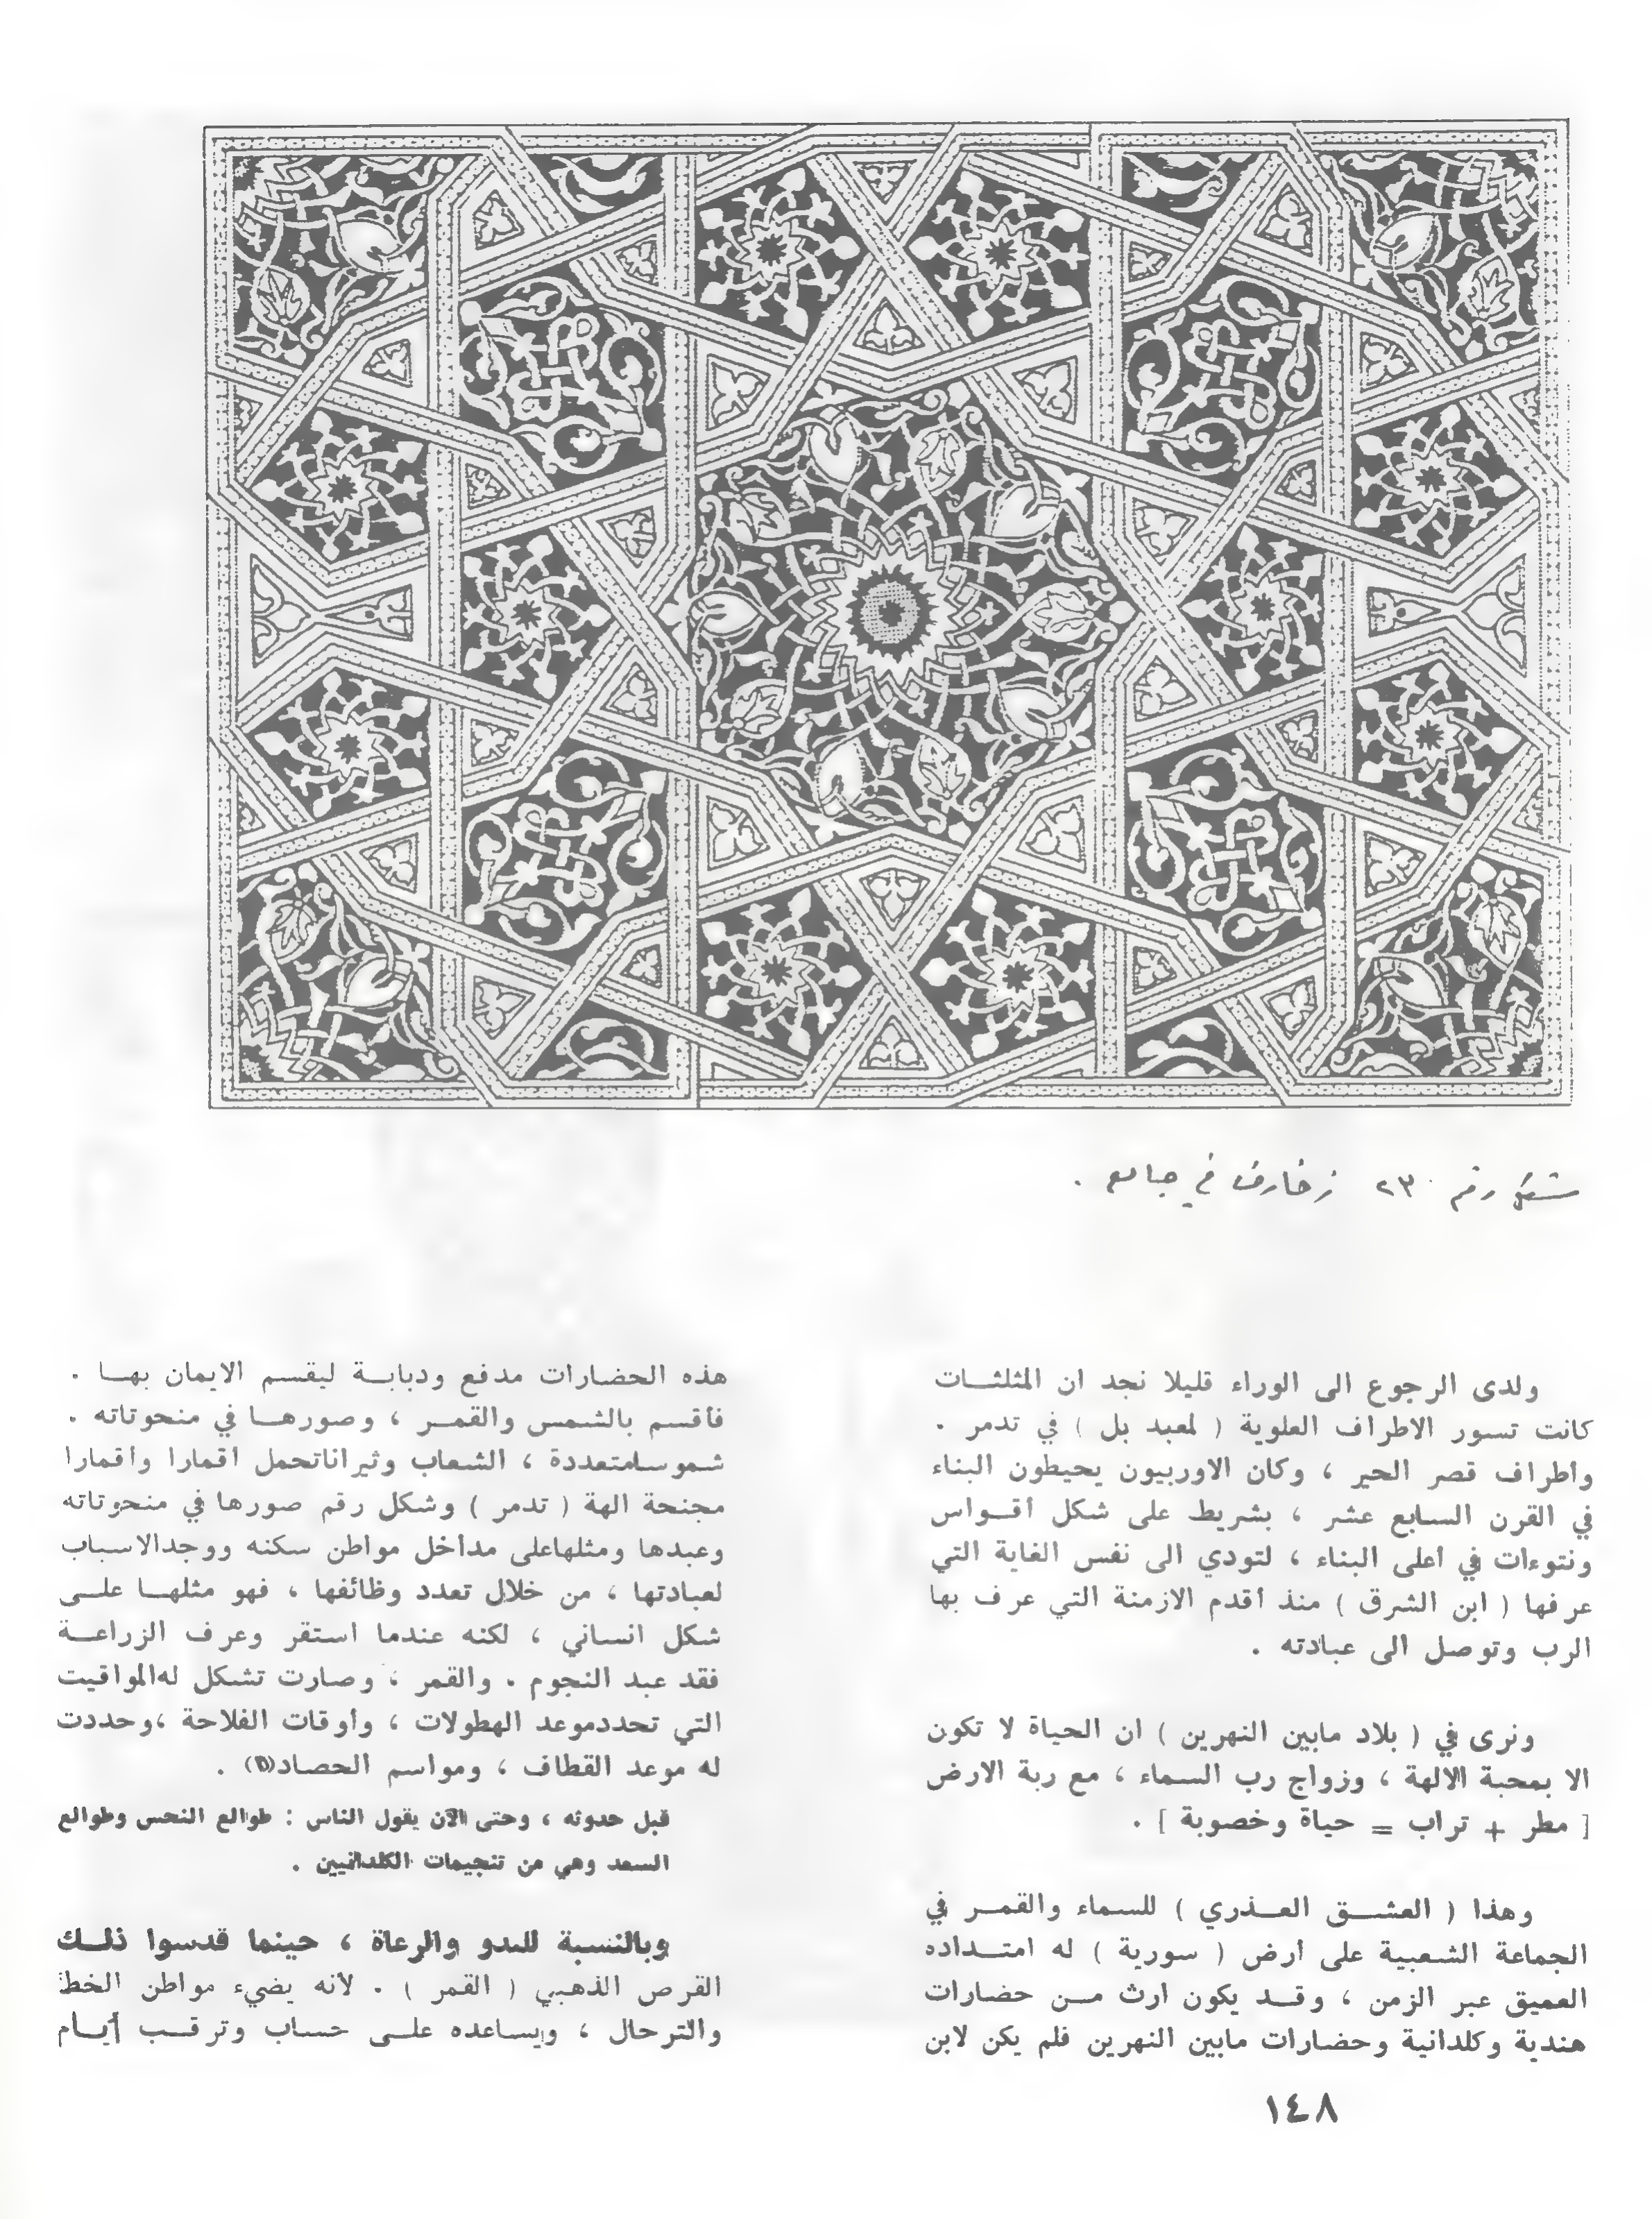 شكل رقم ٢٣ زخارف في جامع .
ولدى الرجوع الى الوراء قليلا نجد ان المثلثــات
كانت تسور الاطراف العلوية ( لمعبد بل ) في تدمر .
وأطراف قصر الحير ، وكان الاوربيون يحيطون البناء
في القرن السابع عشر ، بشريط على شكل أقــواس
ونتوءات في أعلى البناء ، لتودي الى نفس الغاية التي
عرفها ( ابن الشرق ) منذ أقدم الازمنة التي عرف بها
الرب وتوصل الى عبادته .
ونرى في ( بلاد مابين النهرين ) ان الحياة لا تكون
الا بمحبة الالهة ، وزواج رب السماء ، مع ربة الارض
[ مطر + تراب = حياة وخصوبة ] .
وهذا ( العشــق العــذري ) للسماء والقمــر في
الجماعة الشعبية على أرض ( سورية ) له امتــداده
العميق عبر الزمن ، وقــد يكون ارث مــن حضارات
هندية وكلدانية وحضارات مابين النهرين فلم يكن لابن
هذه الحضارات مدفع ودبابــة ليقسم الايمان بهــا .
فأقسم بالشمس والقمــر ، وصورهــا في منحوتاته .
شموسامتعددة ، الشعاب وثيراناتحمل أقمارا وأقمارا
مجنحة الهة ( تدمر ) وشكل رقم صورها في منحوتاته
وعبدها ومثلهاعلى مدأخل مواطن سكنه ووجدالاسباب
لعبادتها ، من خلال تعدد وظائفها ، فهو مثلهــا علــى
شكل انساني ، لكنه عندما استقر وعرف الزراعــة
فقد عبد النجوم . والقمر ، وصارت تشكل لهالمواقيت
التي تحددموعد الهطولات ، وأوقات الفلاحة ،وحددت
له موعد القطاف ، ومواسم الحصاد .
قبل حدوثه ، وحتى الآن يقول الناس : طوالع النحس وطوالع
السعد وهي من تنجيمات الكلدانيين .
وبالنسبة للبدو والرعاة ، حينما قدسوا ذلــك
القرص الذهبي ( القمر ) . لأنه يضيء مواطن الخط
والترحال ، ويساعده علــى حساب وترقــب أيــام
١٤٨